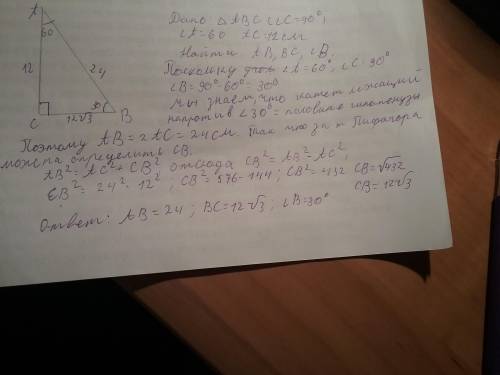 A
60
12
24
30
C
12√3
B
Дано △ABC ∠C=90°;
∠A=60 AC=12см
Найти AB, BC, ∠B.
Поскольку ∠A=60°, ∠C=90°
∠B=90°-60°=30°
мы знаем, что катет лежащий
напротив ∠30°= половине гипотенузы
Поэтому AB=2AC=24см. Так что за т Пифагора
можна определить CB.
AB²=AC²+CB² отсюда CB²=AB²-AC²;
CB²=24²-12²; CB²=576-144; CB²=432 CB=√432
CB=12√3
Ответ: AB=24; BC=12√3; ∠B=30°